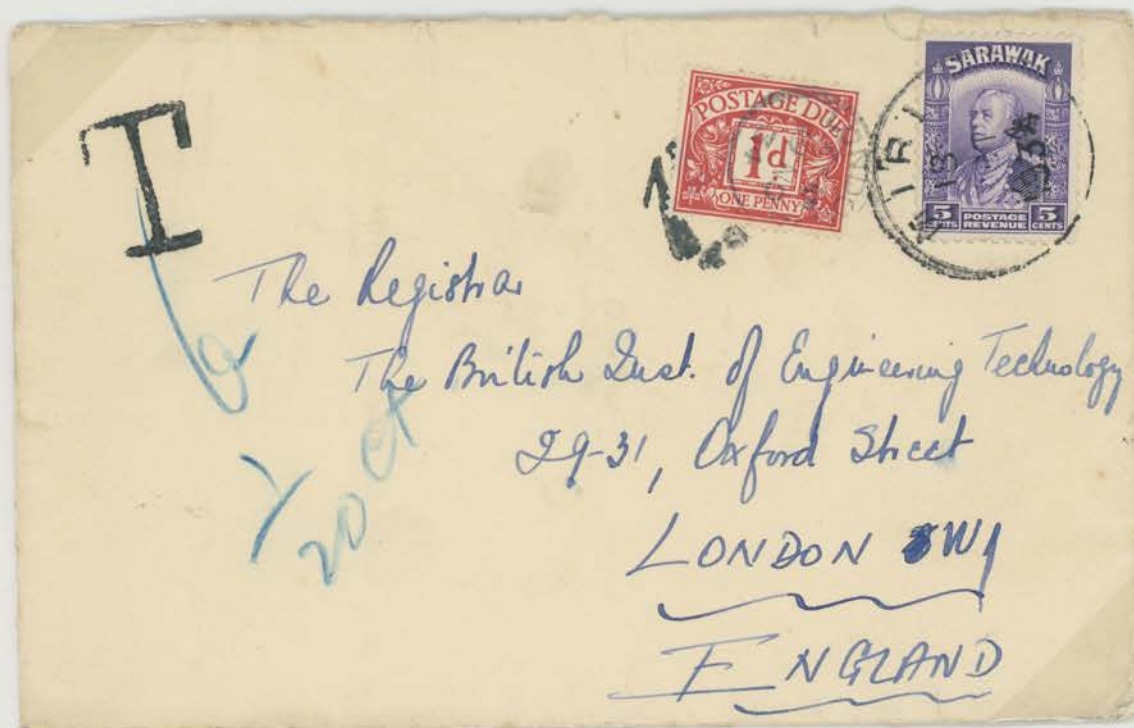 T
POSTAGE DUE
1d
ONE PENNY
SARAWAK
5 CENTS POSTAGE REVENUE 5 CENTS
MIRI
The Registrar
The British Inst. of Engineering Technology
29-31, Oxford Street
LONDON W1
ENGLAND
20